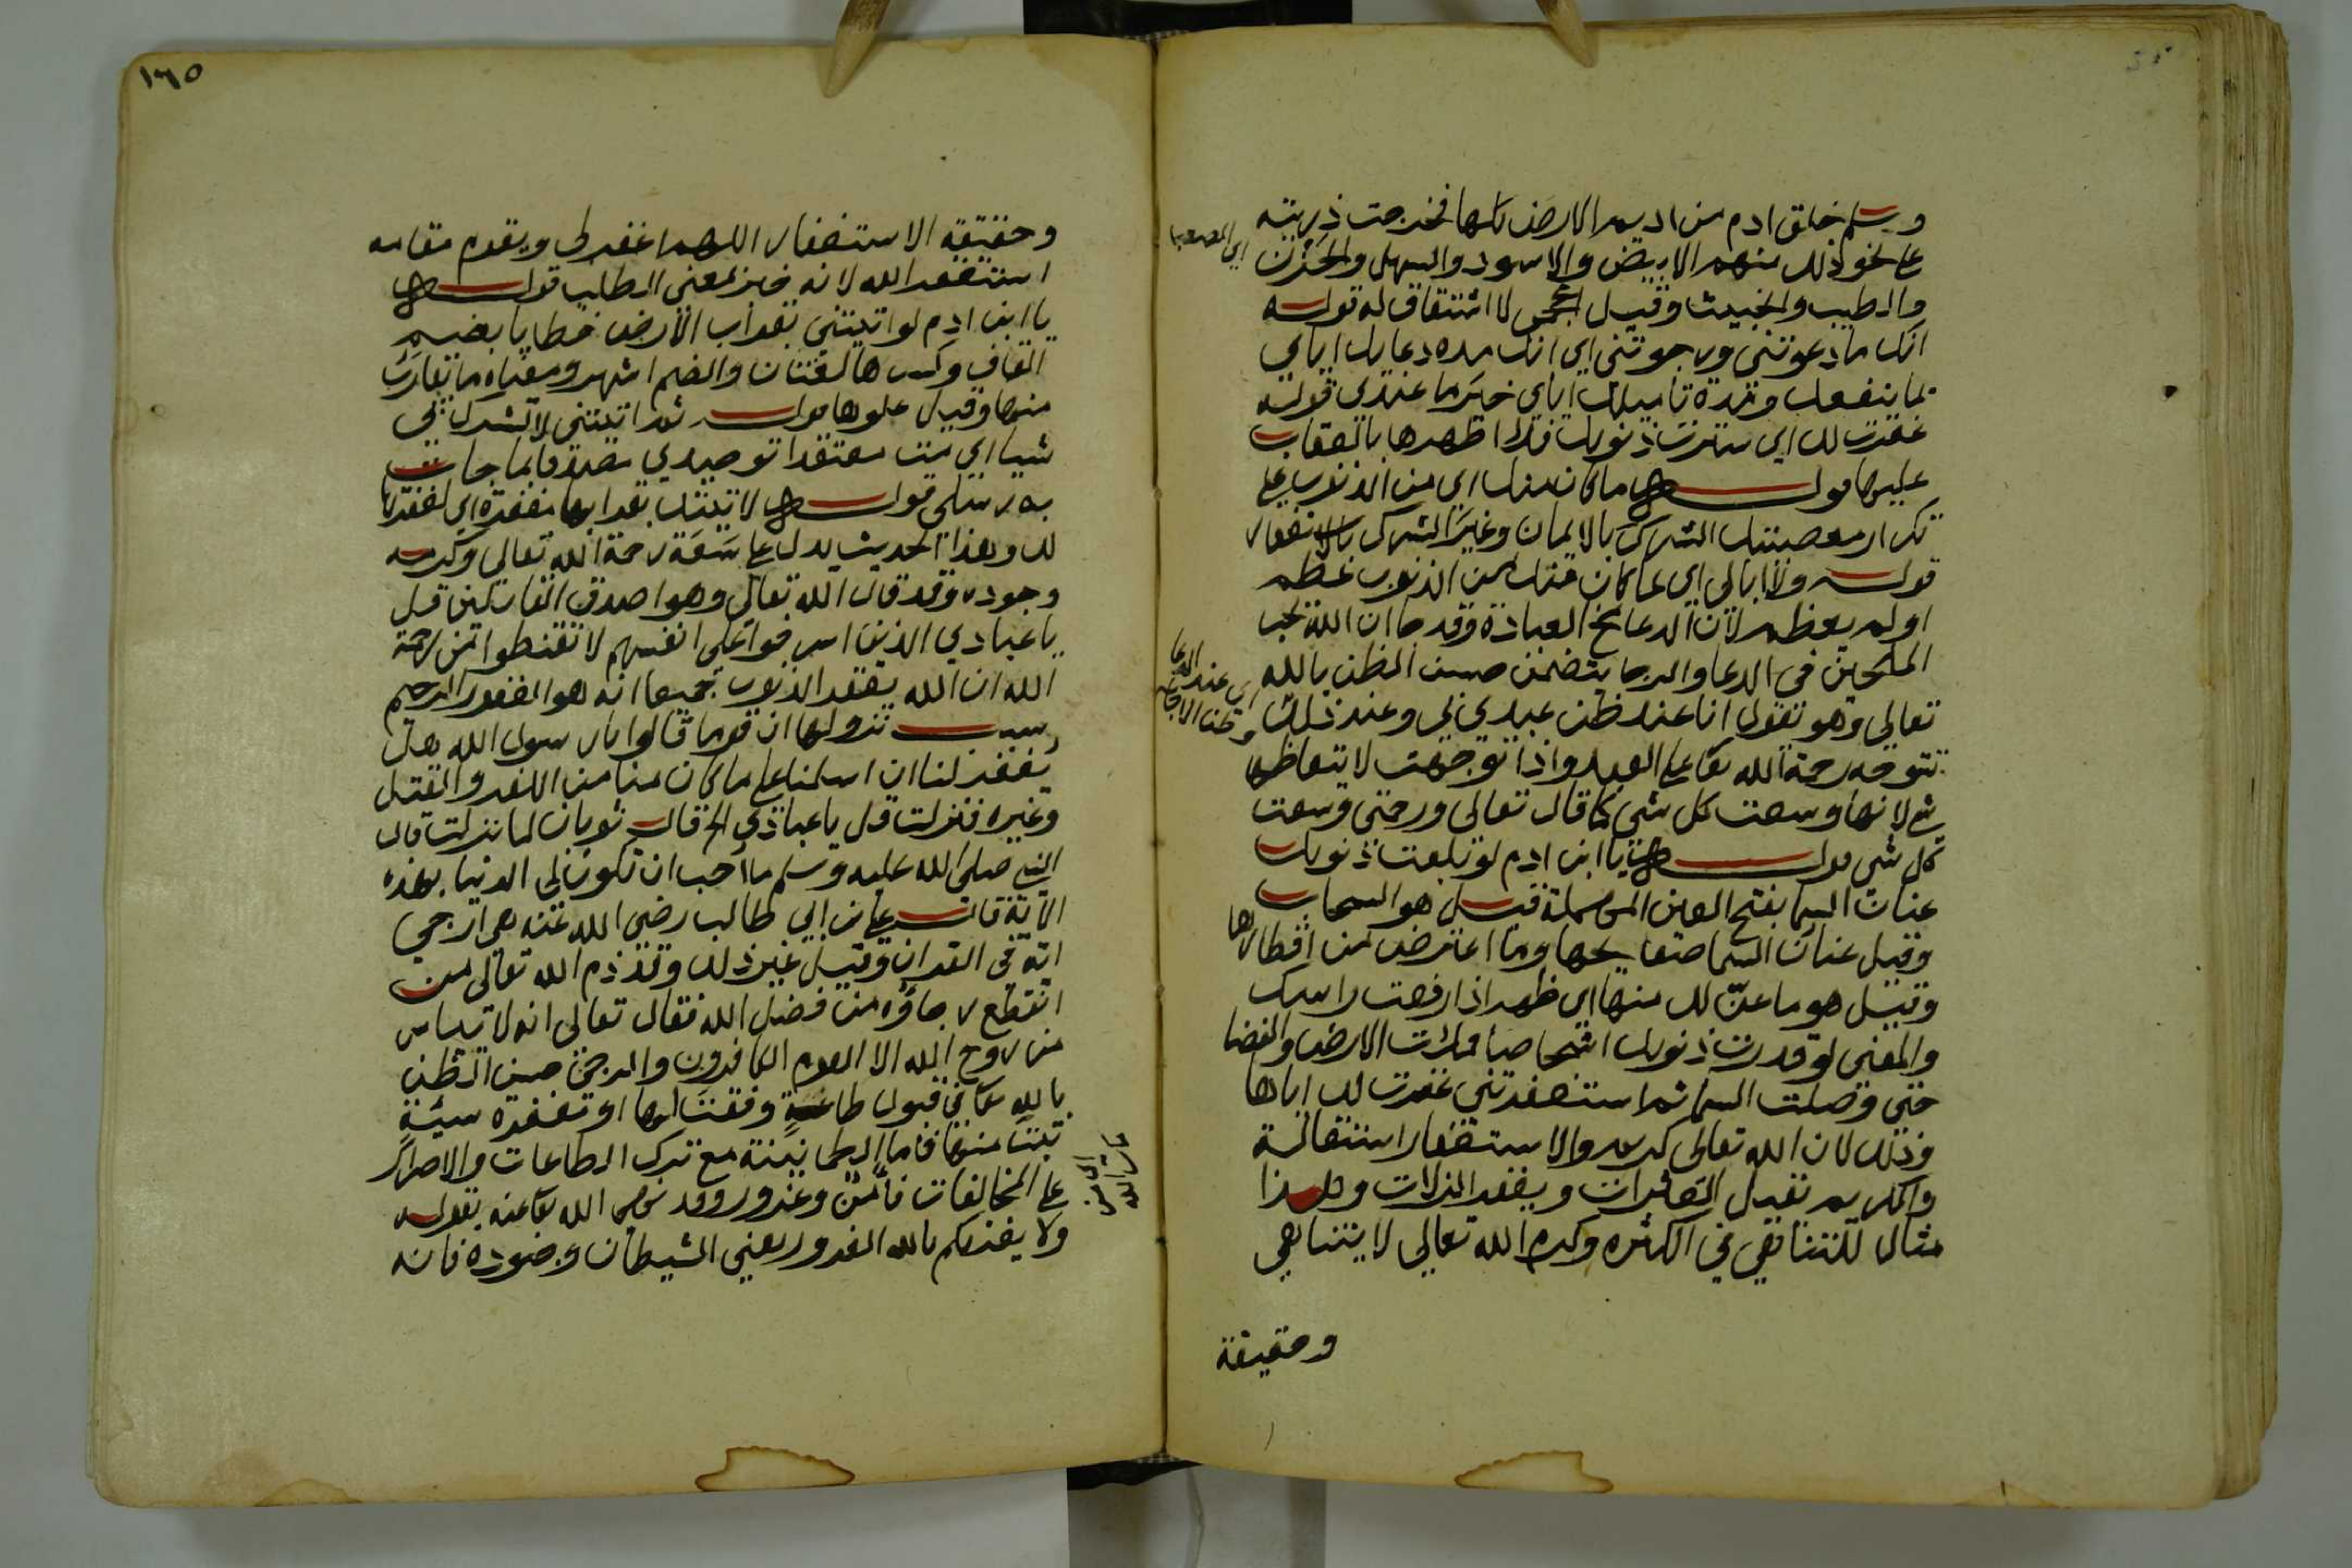 وسلم خلق ادم من اديم الارض كلها فخرجت ذريته
على نحو ذلك منهم الابيض والاسود والسهل والحزن
والطيب والخبيث وقيل اعجمي لا اشتقاق له قوله
انك ما دعوتني ورجوتني اي انك مده دعايك اياي
بما ينفعك ومدة تاميلك اياي خير ما عندي قوله
غفرت لك اي سترت ذنوبك فلا اظهرها بالعقاب
عليها قوله ما كان منك اي من الذنوب على
تكرار معصيتك الشرك بالايمان وغير الشرك بالاستغفار
قوله ولا ابالي اي بما كان منك من الذنوب عظم
اولم يعظم لان الدعا مخ العبادة وقد جا ان الله يحب
الملحين في الدعا والرجا يتضمن حسن الظن بالله
تعالى وهو تقول انا عند ظن عبدي بي وعند ذلك
تتوجه رحمة الله تعا على العبد واذا توجهت لا يتعاظمها
شي لانها وسعت كل شي كما قال تعالى ورحمتي وسعت
كل شي قوله يا ابن ادم لو بلغت ذنوبك
عنان السما بفتح العين المهملة قيل هو السحاب
وقيل عنان السما صفايحها وما اعترض من اقطارها
وقيل هو ما عنّ لك منها اي ظهر اذا رفعت راسك
والمعنى لو قدرت ذنوبك اشخاصا ملات الارض والفضا
حتى وصلت السما ثم استغفرتني غفرت لك اياها
وذلك لان الله تعالى كريم والاستغفار استقالة
والكريم تقبل العثرات ويغفر الزلات وهذا
مثال للتناهي في الكثره وكرم الله تعالى لا يتناهي
وحقيقة
اي عند الدعا
وظن الاجابة
١٦٥
وحقيقة الاستغفار اللهم اغفرلي ويقوم مقامه
استغفر الله لانه خبر بمعنى الطلب قوله
يا ابن ادم لو اتيتني بقراب الارض خطايا بضم
القاف وكسرها لغتان والضم اشهر ومعناه ما يقارب
منها وقيل علوها قوله ثم اتيتني لا تشرك بي
شيا اي مت معتقدا توحيدي مصدقا بما جات
به رسلي قوله لاتيتك بقرابها مغفرة اي لغفرتها
لك وهذا الحديث يدل على سَعَة رحمة الله تعالى وكرمه
وجوده وقد قال الله تعالى وهو اصدق القايلين قل
يا عبادي الذين اسرفوا على انفسهم لا تقنطوا من رحمة
الله ان الله يغفر الذنوب جميعا انه هو الغفور الرحيم
سبب نزولها ان قوما قالوا يا رسول الله هل
يغفر لنا ان اسلمنا على ما كان منا من الكفر والقتل
وغيره فنزلت قل يا عبادي الخ قال ثوبان لما نزلت قال
النبي صلى الله عليه وسلم ما احب ان تكون لي الدنيا بهذه
الاية قال علي ابن ابي طالب رضي الله عنه هي ارجى
اية في القران وقيل غير ذلك وقد ذم الله تعالى من
انقطع رجاؤه من فضل الله فقال تعالى انه لا ييأس
من روح الله الا القوم الكافرون والمرجى حسن الظن
بالله تعا في قبول طاعة وفقت لها او تغفرة سيئة
تبت منها فاما الطمانينة مع ترك الطاعات والاصرار
على المخالفات فأمن وغرور وقد نهى الله تعا عنه بقوله
ولا يغرنكم بالله الغرور يعني الشيطان وجنوده فانه